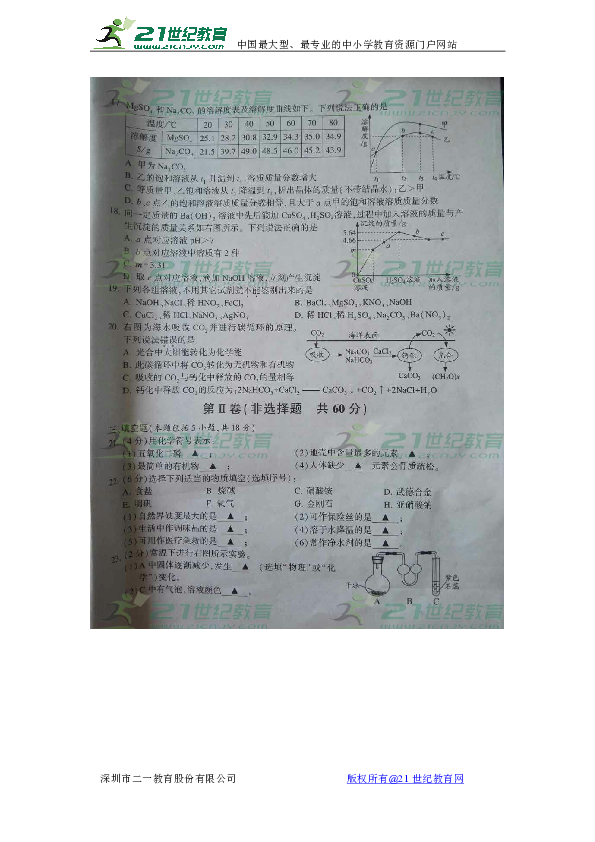 21世纪教育
WWW.21CNJY.COM
中国最大型、最专业的中小学教育资源门户网站
MgSO₄和Na₂CO₃的溶解度表及溶解度曲线如下。下列说法正确的是
温度/℃ 20 30 40 50 60 70 80
溶解度 MgSO₄ 25.1 28.2 30.8 32.9 34.3 35.0 34.9
S/g Na₂CO₃ 21.5 39.7 49.0 48.5 46.0 45.2 43.9
A. 甲为Na₂CO₃
B. 乙的饱和溶液从t₁升温到t₂,溶质质量分数增大
C. 等质量甲、乙饱和溶液从t₂降温到t₁,析出晶体的质量(不带结晶水):乙>甲
D. b、a点乙的饱和溶液溶质质量分数相等,且大于a点甲的饱和溶液溶质质量分数
18. 向一定质量的Ba(OH)₂溶液中先后滴加CuSO₄、H₂SO₄溶液,过程中加入溶液的质量与产
生沉淀的质量关系如右图所示。下列说法正确的是
沉淀的质量/g
5.64
4.66
CuSO₄ H₂SO₄溶液 加入溶液
溶液 的质量/g
A. a点对应溶液pH>7
B. b点对应溶液中溶质有2种
C. m=3.31
D. 取c点对应溶液,滴加NaOH溶液,立刻产生沉淀
19. 下列各组溶液,不用其它试剂就不能鉴别出来的是
A. NaOH、NaCl、稀HNO₃、FeCl₃ B. BaCl₂、MgSO₄、KNO₃、NaOH
C. CuCl₂、稀HCl、NaNO₃、AgNO₃ D. 稀HCl、稀H₂SO₄、Na₂CO₃、Ba(NO₃)₂
20. 右图为海水吸收CO₂并进行碳循环的原理。
下列说法错误的是
CO₂ 海洋表面 CO₂
吸收 Na₂CO₃ CaCl₂ 钙化 光合
NaHCO₃
CaCO₃ (CH₂O)x
A. 光合中太阳能转化为化学能
B. 此碳循环中将CO₂转化为无机物和有机物
C. 吸收的CO₂与钙化中释放的CO₂的量相等
D. 钙化中释放CO₂的反应为:2NaHCO₃+CaCl₂ —— CaCO₃↓+CO₂↑+2NaCl+H₂O
第Ⅱ卷(非选择题 共60分)
三、填空题(本题包括5小题,共18分)
21. (4分)用化学符号表示:
(1)五氧化二磷 ▲ ; (2)地壳中含量最多的元素 ▲ ;
(3)最简单的有机物 ▲ ; (4)人体缺少 ▲ 元素会骨质疏松。
22. (6分)选择下列适当的物质填空(选填序号):
A. 食盐 B. 烧碱 C. 硝酸铵 D. 武德合金
E. 明矾 F. 氧气 G. 金刚石 H. 亚硝酸钠
(1)自然界硬度最大的是 ▲ ; (2)可作保险丝的是 ▲ ;
(3)生活中作调味品的是 ▲ ; (4)溶于水降温的是 ▲ ;
(5)可用作医疗急救的是 ▲ ; (6)常作净水剂的是 ▲ 。
23. (2分)常温下进行右图所示实验。
(1)A中固体逐渐减少,发生 ▲ (选填“物理”或“化
学”)变化。
(2)C中有气泡,溶液颜色 ▲ 。
干冰
紫色
石蕊
A B C
深圳市二一教育股份有限公司
版权所有@21世纪教育网